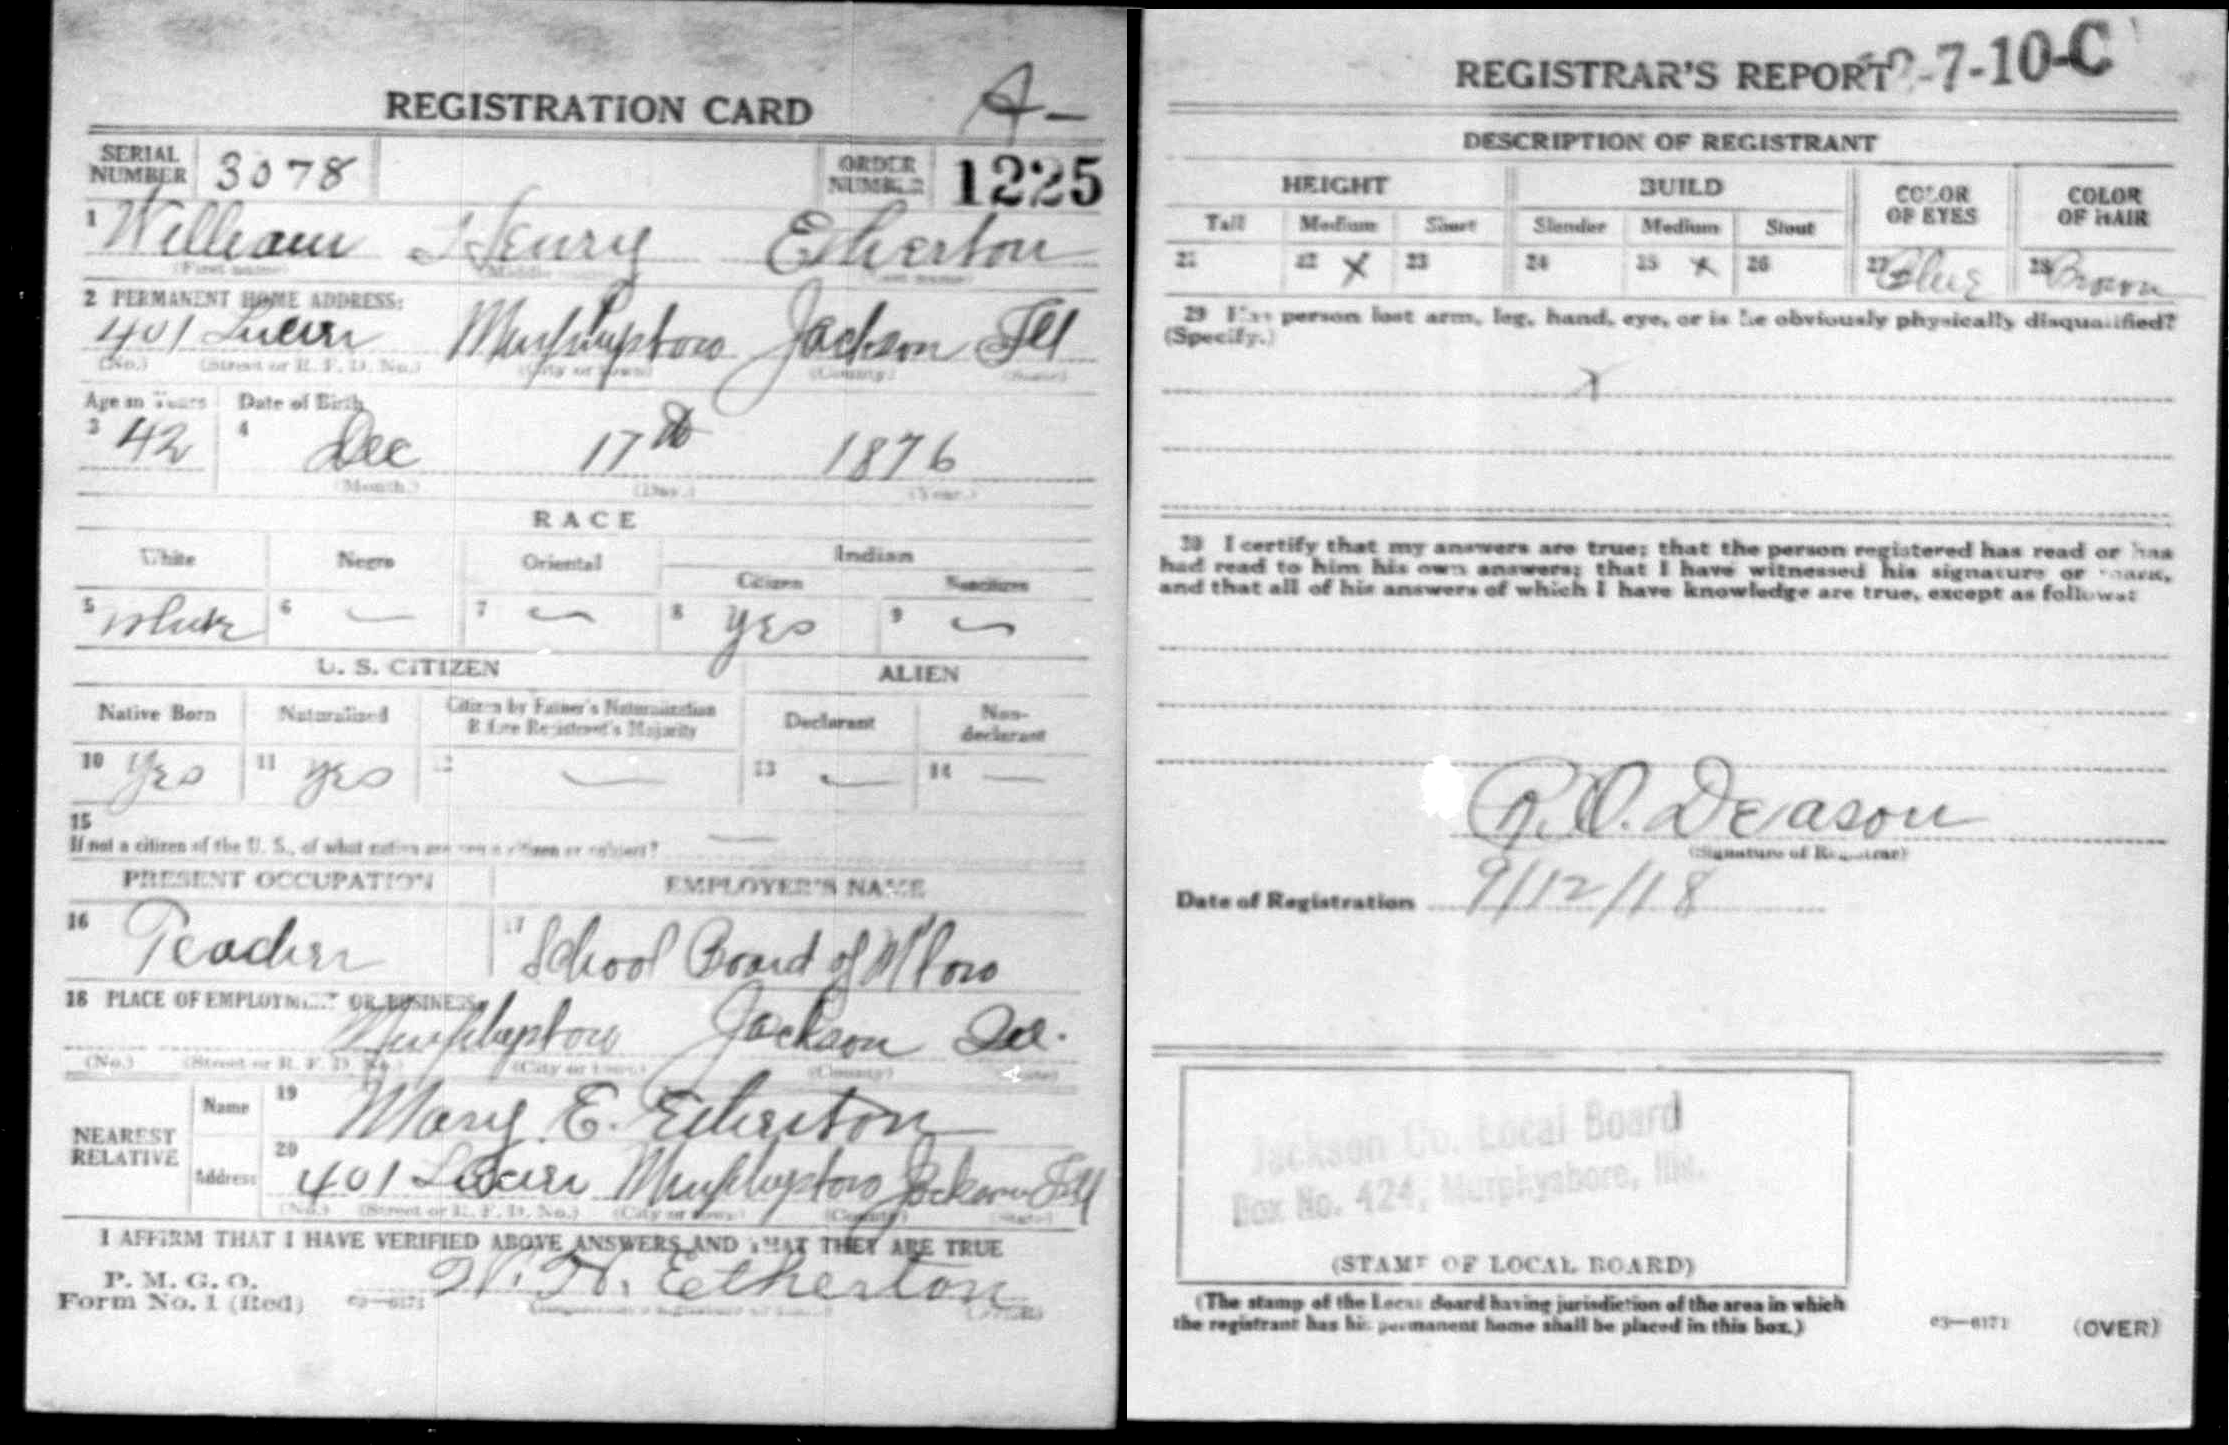 REGISTRATION CARD A-
SERIAL NUMBER 3078 ORDER NUMBER 1225
1 William Henry Etherton
(First name) (Middle name) (Last name)
2 PERMANENT HOME ADDRESS:
401 Lucier Murphysboro Jackson Ill
(No.) (Street or R. F. D. No.) (City or town) (County) (State)
Age in Years Date of Birth
3 42 4 Dec 17th 1876
(Month.) (Day.) (Year.)
RACE
White Negro Oriental Indian
Citizen Noncitizen
5 White 6 — 7 — 8 Yes 9 —
U. S. CITIZEN ALIEN
Native Born Naturalized Citizen by Father's Naturalization Before Registrant's Majority Declarant Non-declarant
10 Yes 11 Yes 12 — 13 — 14 —
15
If not a citizen of the U. S., of what nation are you a citizen or subject? —
PRESENT OCCUPATION EMPLOYER'S NAME
16 Teacher 17 School Board of M'boro
18 PLACE OF EMPLOYMENT OR BUSINESS:
Murphysboro Jackson Ill.
(No.) (Street or R. F. D. No.) (City or town) (County) (State)
NEAREST RELATIVE Name 19 Mary E. Etherton
Address 20 401 Lucier Murphysboro Jackson Ill
(No.) (Street or R. F. D. No.) (City or town) (County) (State)
I AFFIRM THAT I HAVE VERIFIED ABOVE ANSWERS AND THAT THEY ARE TRUE
P. M. G. O.
Form No. 1 (Red) 03—6171 W. H. Etherton
REGISTRAR'S REPORT -7-10-C
DESCRIPTION OF REGISTRANT
HEIGHT BUILD COLOR OF EYES COLOR OF HAIR
Tall Medium Short Slender Medium Stout
21 22 X 23 24 25 X 26 27 Blue 28 Brown
29 Has person lost arm, leg, hand, eye, or is he obviously physically disqualified?
(Specify.)
X
30 I certify that my answers are true; that the person registered has read or has
had read to him his own answers; that I have witnessed his signature or mark,
and that all of his answers of which I have knowledge are true, except as follows:
R. O. Deason
(Signature of Registrar)
Date of Registration 9/12/18
Jackson Co. Local Board
Box No. 424, Murphysboro, Ills.
(STAMP OF LOCAL BOARD)
(The stamp of the Local Board having jurisdiction of the area in which
the registrant has his permanent home shall be placed in this box.)
03—6171 (OVER)